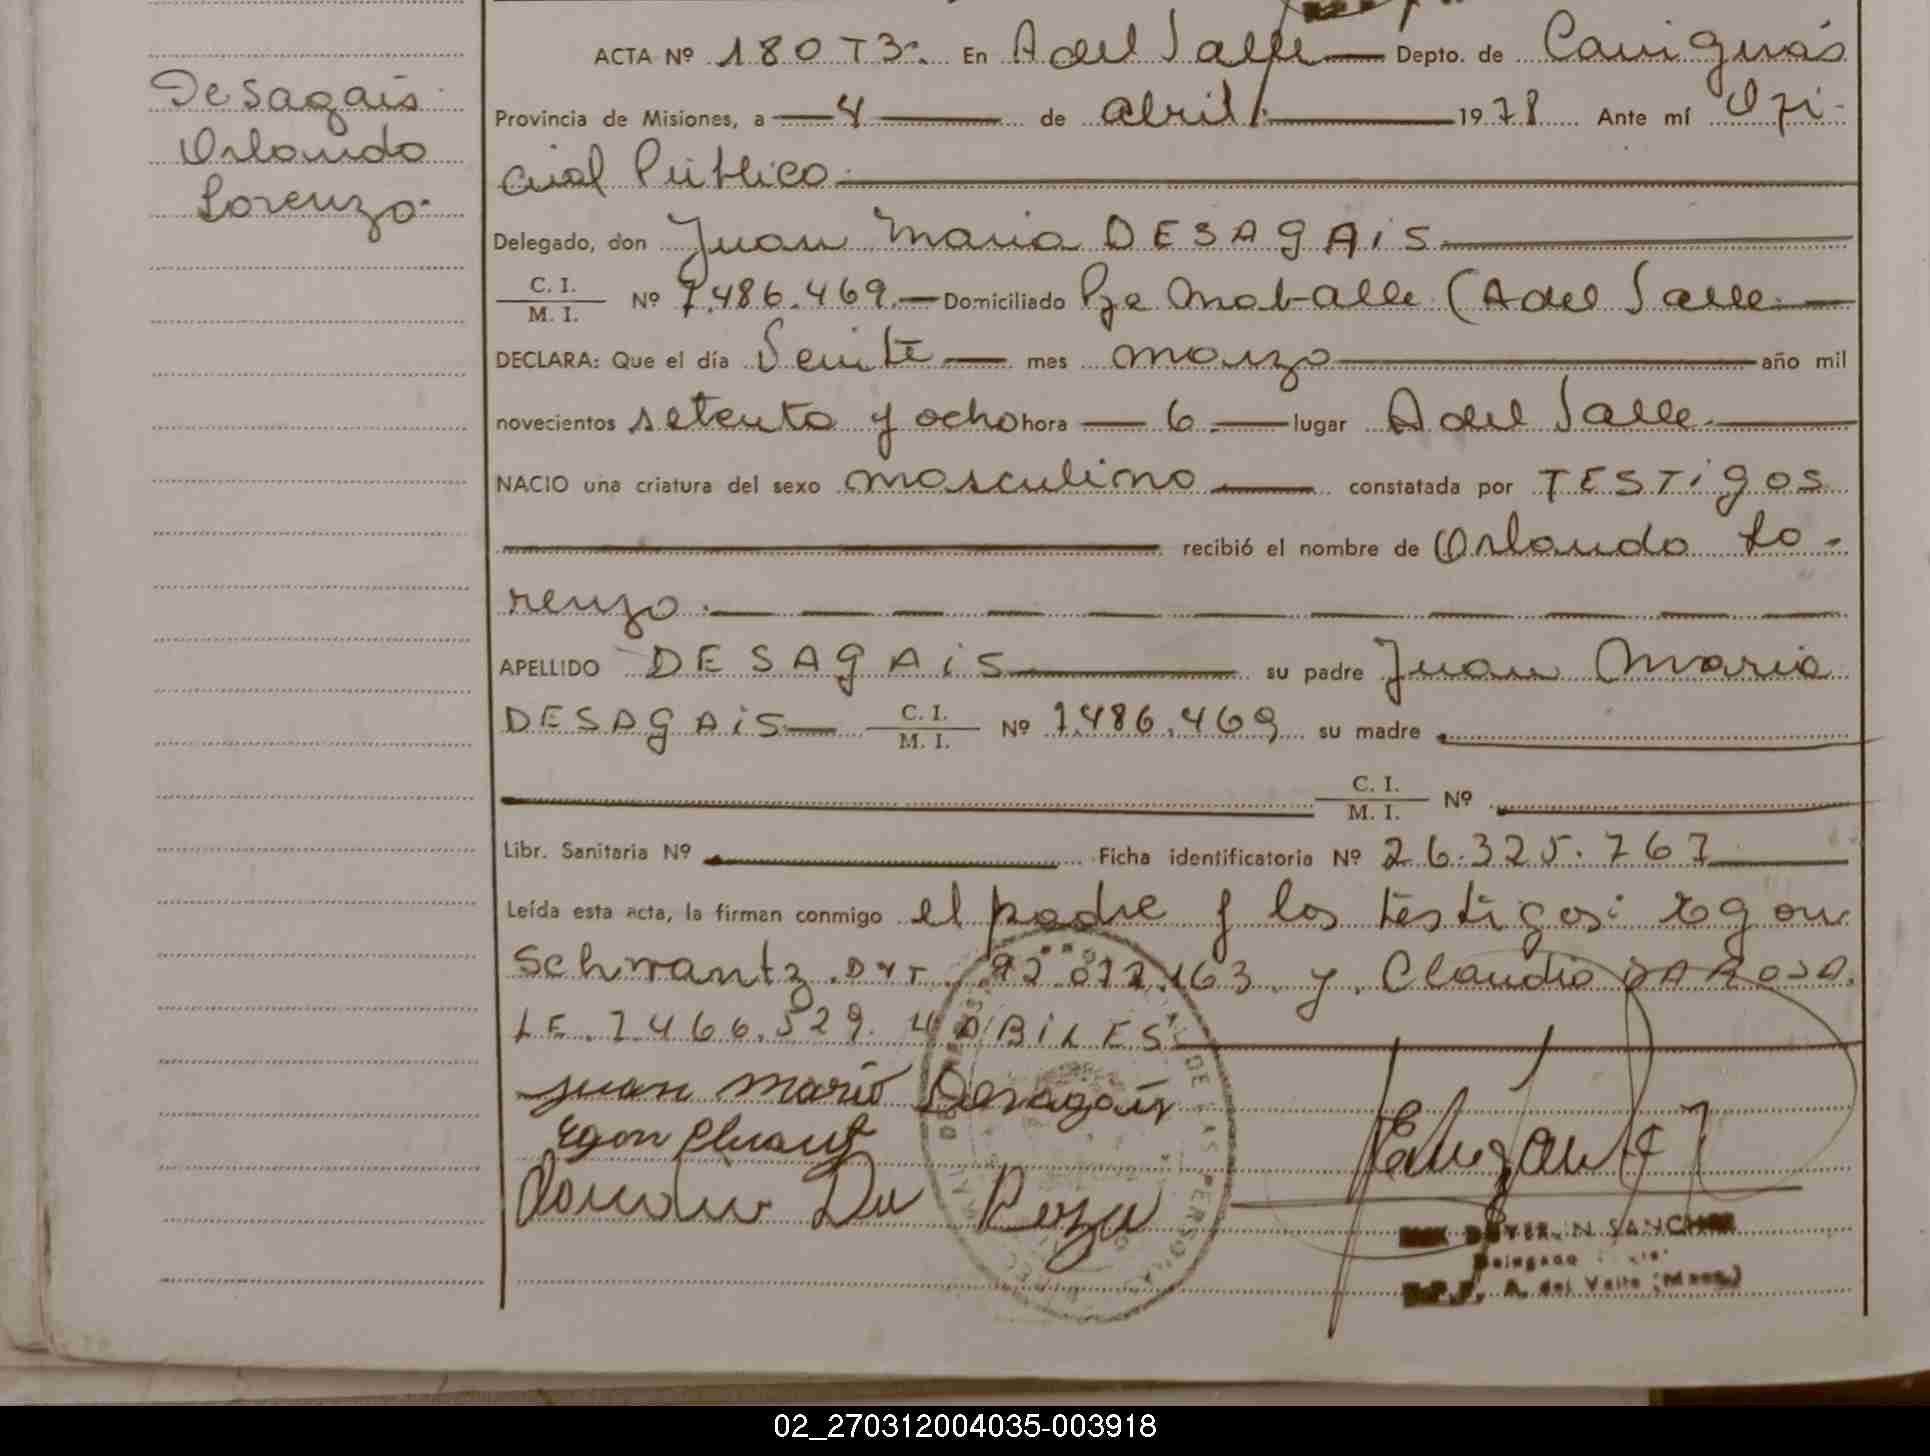 Desagais
Orlando
Lorenzo.
ACTA Nº 180 T3º. En A del Valle Depto. de Cainguás
Provincia de Misiones, a 4 de abril 1978 Ante mí Ofi-
cial Público
Delegado, don Juan Maria DESAGAiS
C. I.
M. I. Nº 7.486.469. Domiciliado (A del Valle
DECLARA: Que el día Veinte mes marzo año mil
novecientos setenta y ocho hora 6 lugar A del Valle
NACIO una criatura del sexo masculino constatada por TESTiGOS
recibió el nombre de Orlando Lo-
renzo.
APELLIDO DESAGAiS su padre Juan Maria
DESAGAiS C. I.
M. I. Nº 7.486.469 su madre
C. I.
M. I. Nº
Libr. Sanitaria Nº Ficha identificatoria Nº 26.325.767
Leída esta acta, la firman conmigo el padre y los testigos: Egon
Schwantz. 92.072.163. y Claudio DA ROSA.
LE. 7.466.529. HABiLES
Juan Mario Desagais
Egon
Da Roza
SANCHEZ
Delegado
A. del Valle (Mnes.)
DE LAS PERSONAS
02_270312004035-003918